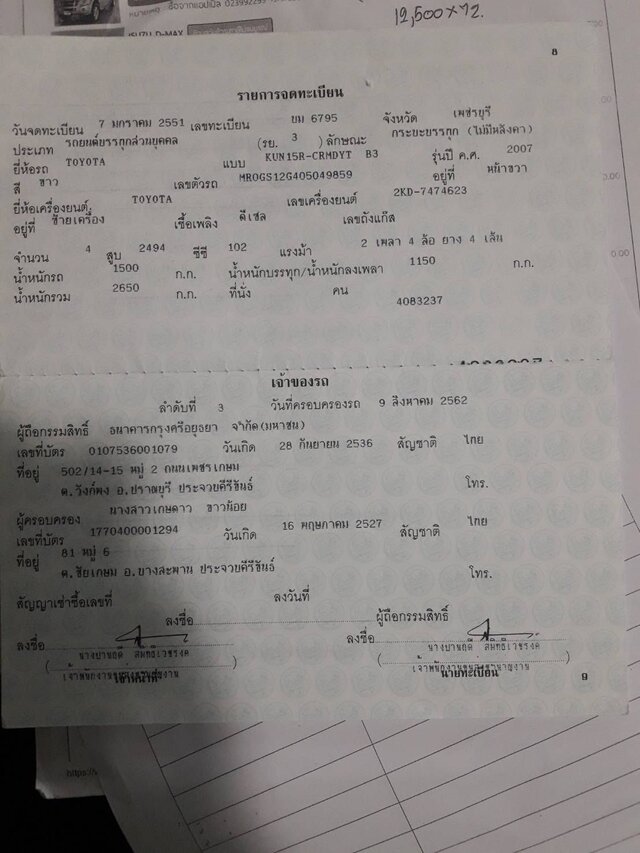 หมายเหตุ ซื้อจากแอปเปิ้ล
ISUZU D-MAX
12,500×72.
8
รายการจดทะเบียน
วันจดทะเบียน 7 มกราคม 2551 เลขทะเบียน ขม 6795 จังหวัด เพชรบุรี
ประเภท รถยนต์บรรทุกส่วนบุคคล (รย. 3 ) ลักษณะ กระบะบรรทุก (ไม่มีหลังคา)
ยี่ห้อรถ TOYOTA แบบ KUN15R-CRMDYT B3 รุ่นปี ค.ศ. 2007
สี ขาว เลขตัวรถ MR0GS12G405049859 อยู่ที่ หน้าขวา
ยี่ห้อเครื่องยนต์ TOYOTA เลขเครื่องยนต์ 2KD-7474623
อยู่ที่ ซ้ายเครื่อง เชื้อเพลิง ดีเซล เลขถังแก๊ส
จำนวน 4 สูบ 2494 ซีซี 102 แรงม้า 2 เพลา 4 ล้อ ยาง 4 เส้น
น้ำหนักรถ 1500 ก.ก. น้ำหนักบรรทุก/น้ำหนักลงเพลา 1150 ก.ก.
น้ำหนักรวม 2650 ก.ก. ที่นั่ง คน
4083237
เจ้าของรถ
ลำดับที่ 3 วันที่ครอบครองรถ 9 สิงหาคม 2562
ผู้ถือกรรมสิทธิ์ ธนาคารกรุงศรีอยุธยา จำกัด(มหาชน)
เลขที่บัตร 0107536001079 วันเกิด 28 กันยายน 2536 สัญชาติ ไทย
ที่อยู่ 502/14-15 หมู่ 2 ถนนเพชรเกษม
ต.วังก์พง อ.ปราณบุรี ประจวบคีรีขันธ์ โทร.
ผู้ครอบครอง นางสาวเกษดาว ขาวน้อย
เลขที่บัตร 1770400001294 วันเกิด 16 พฤษภาคม 2527 สัญชาติ ไทย
ที่อยู่ 81 หมู่ 6
ต.ชัยเกษม อ.บางสะพาน ประจวบคีรีขันธ์ โทร.
สัญญาเช่าซื้อเลขที่ ลงวันที่
ลงชื่อ ผู้ถือกรรมสิทธิ์
ลงชื่อ ลงชื่อ
นางปานฤดี สมิทธิเวชรงค์ นางปานฤดี สมิทธิเวชรงค์
( เจ้าพนักงานขนส่งชำนาญงาน ) ( เจ้าพนักงานขนส่งชำนาญงาน )
เจ้าหน้าที่ นายทะเบียน
9